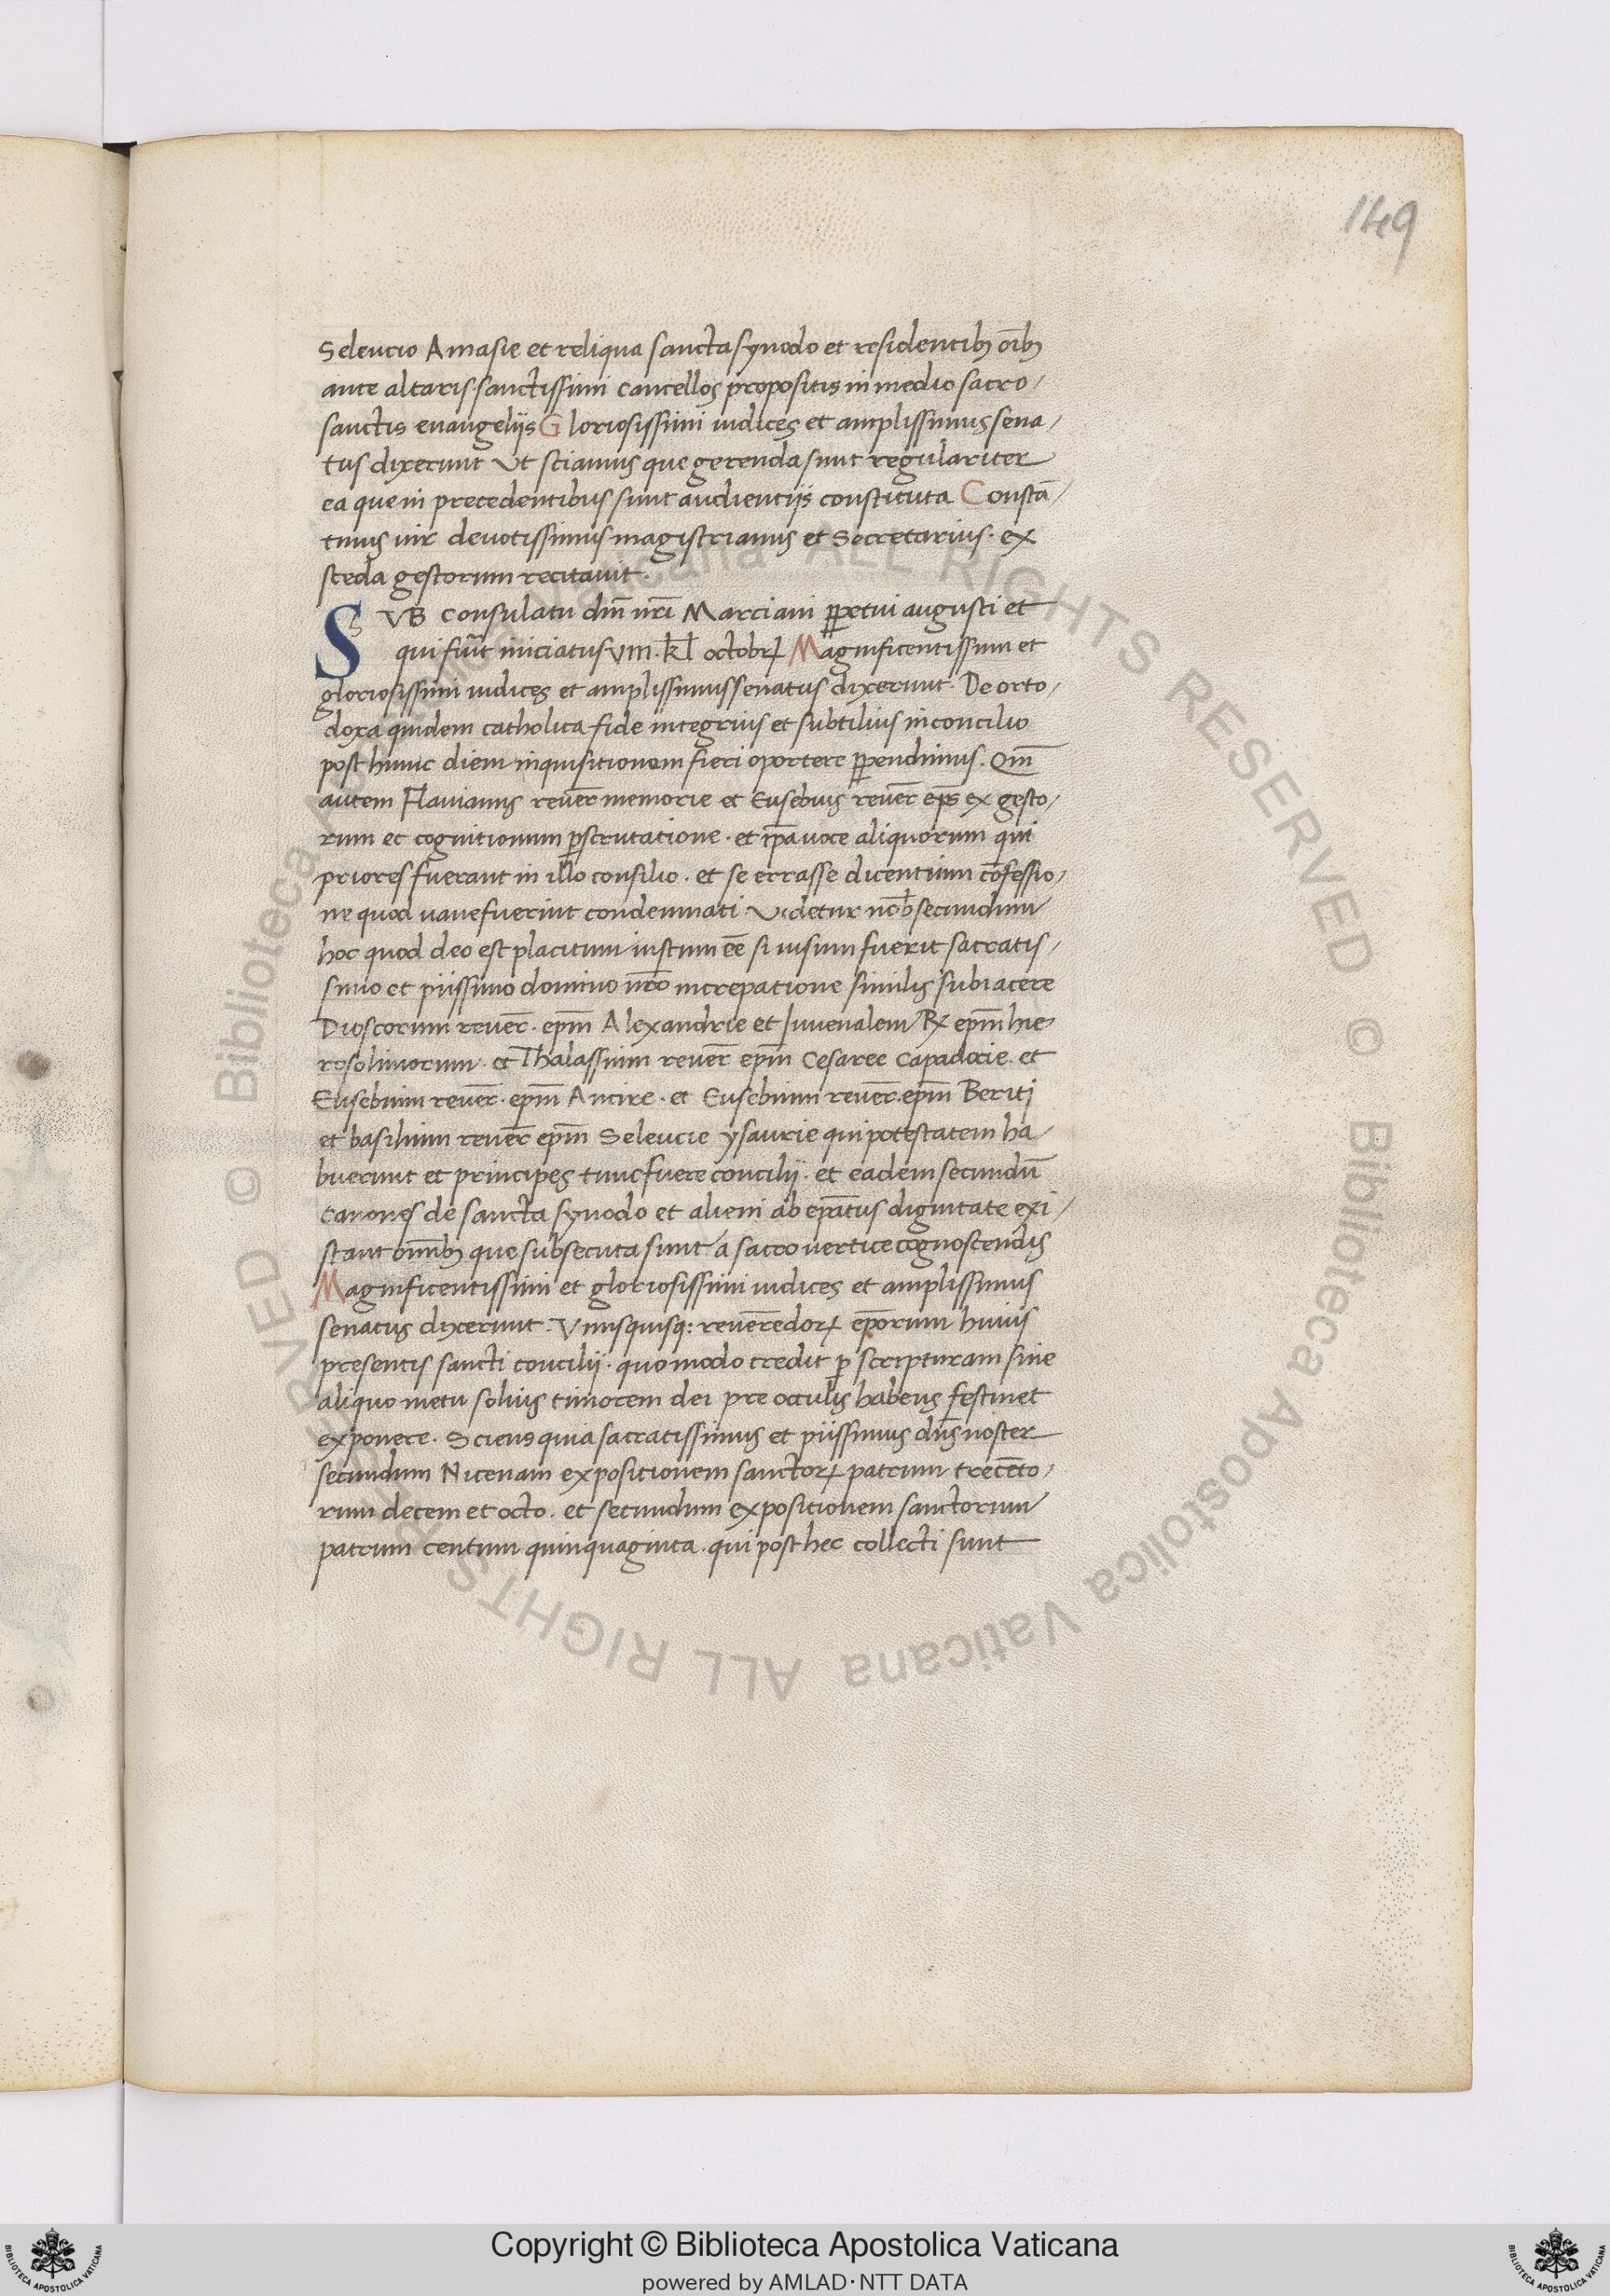 149
Seleucio Amasie et reliqua sancta synodo et residentibꝫ oĩbꝫ
ante altaris sanctissimi cancellos propositis in medio sacro/
sanctis euangeliis Gloriosissimi iudices et amplissimus sena/
tus dixerunt Vt sciamus que gerenda sunt regulariter
ea que in precedentibus sunt audientiis constituta Constā/
tinus uir deuotissimus magistrianus et Secretarius. ex
sceda gestorum recitauit.
SVB Consulatu dñi nr̃i Marciani ꝑpetui augusti et
qui fuit iniciatus VIII. kl̃ octobrꝝ Magnificentissimi et
gloriosissimi iudices et amplissimus senatus dixerunt. De orto/
doxa quidem catholica fide integrius et subtilius in concilio
post hunc diem inquisitionem fieri oportere ꝑpendimus. Qm̃
autem Flauianus reuer̃ memorie et Eusebius reuer̃ ep̃s ex gesto/
rum et cognitionum ꝑscrutatione. et ip̃a uoce aliquorum qui
priores fuerant in illo consilio. et se errasse dicentium cõfessio/
ne quod uane fuerint condemnati Videtur nob̃ secundum
hoc quod deo est placitum iustum eẽ si uisum fuerit sacratis/
simo et piissimo domino nr̃o increpatione similis subiacere
Dioscorum reuer̃. ep̃m Alexandrie et Iuuenalem R̃ ep̃m hie
rosolimorum. et Thalassium reuer̃ ep̃m Cesaree Capadocie. et
Eusebium reuer̃. ep̃m Ancire. et Eusebium reuer̃. ep̃m Beriti
et basilium reuer̃ ep̃m Seleucie ysaurie qui potestatem ha/
buerunt et principes tunc fuere concilij. et eadem secundũ
canones de sancta synodo et alieni ab ep̃atus dignitate exi/
stant om̃ibꝫ que subsecuta sunt a sacro uertice cognoscendis
Magnificentissimi et gloriosissimi iudices et amplissimus
senatus dixerunt. Vnusquisqꝫ reuerẽdorꝝ ep̃orum huius
presentis sancti concilij. quomodo credit ꝑ scripturam sine
aliquo metu solius timorem dei pre oculis habens festinet
exponere. Sciens quia sacratissimus et piissimus dñs noster
secundum Nicenam expositionem sanctorꝝ patrum trecẽto/
rum decem et octo. et secundum expositionem sanctorum
patrum centum quinquaginta. qui post hec collecti sunt
© Biblioteca Apostolica Vaticana ALL RIGHTS RESERVED
© Biblioteca Apostolica Vaticana ALL RIGHTS RESERVED
Copyright © Biblioteca Apostolica Vaticana
powered by AMLAD·NTT DATA
BIBLIOTECA APOSTOLICA VATICANA
BIBLIOTECA APOSTOLICA VATICANA